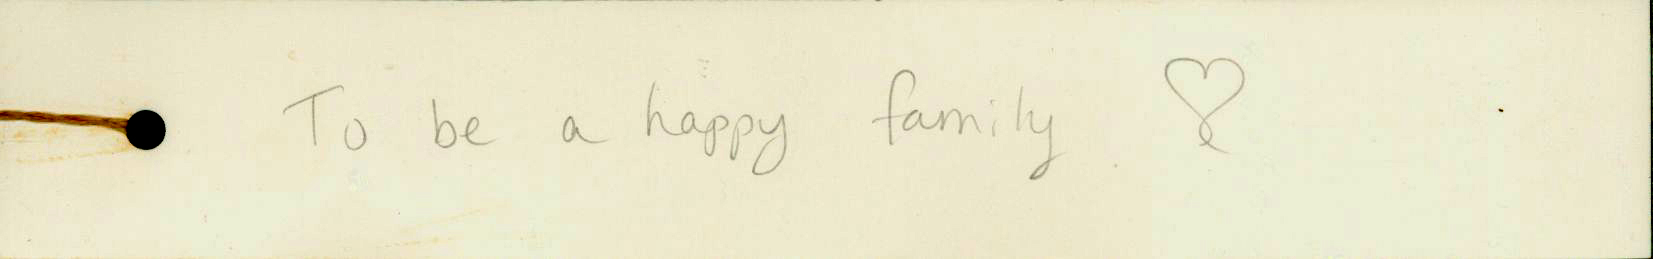 To be a happy family ♡